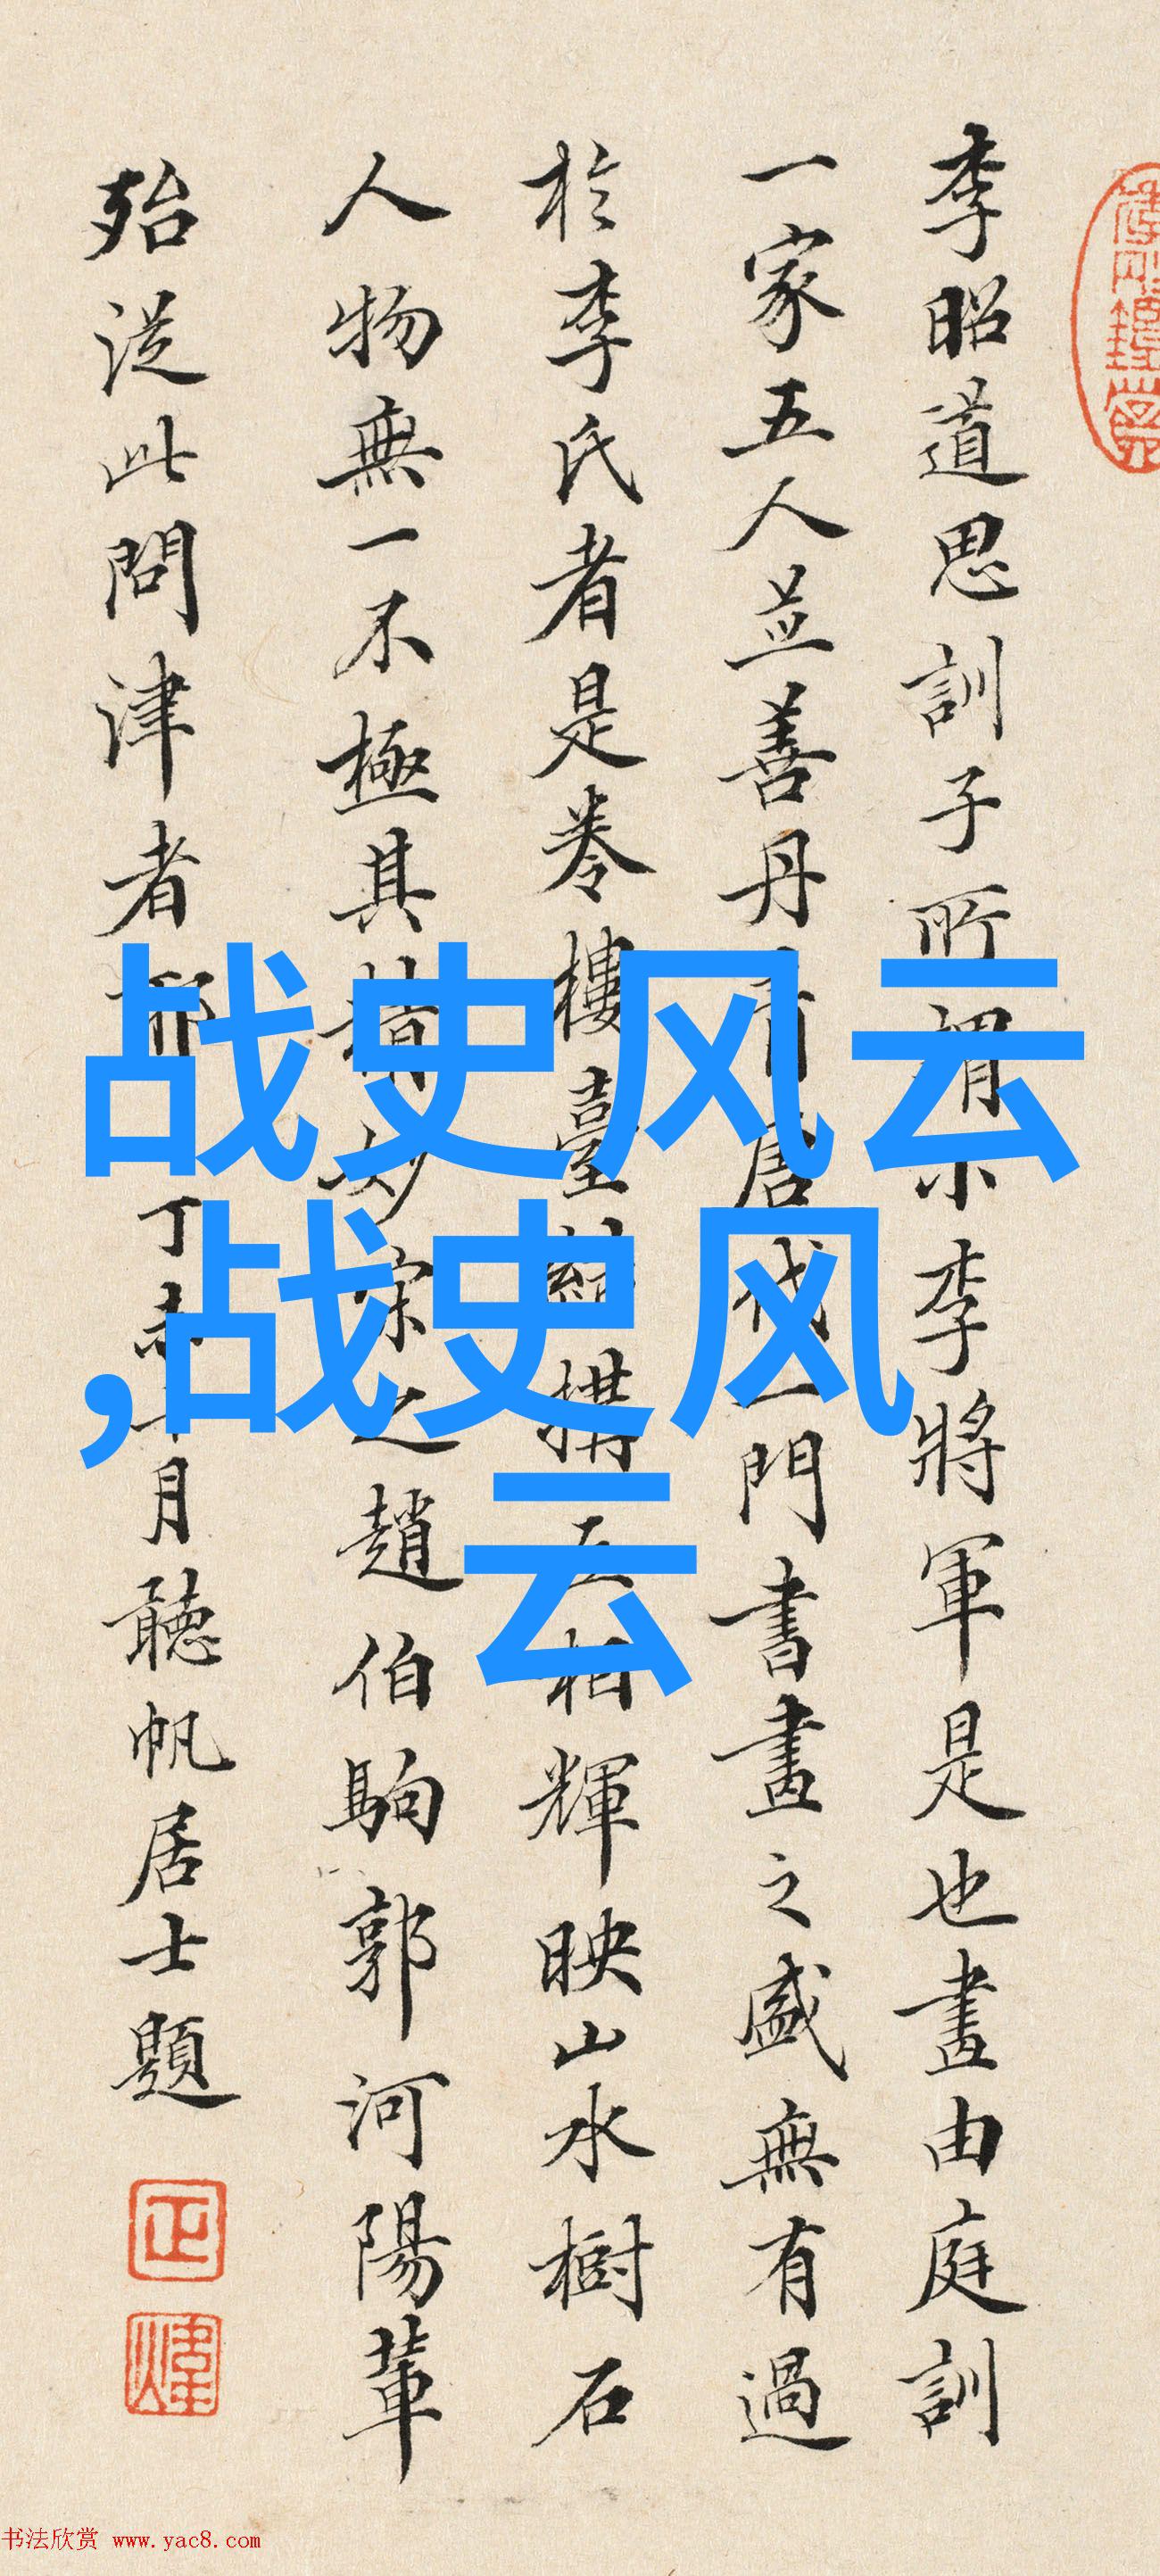 李昭道思訓子所謂小李將軍是也畫由庭訓
一家五人並善丹青唐代一門書畫之盛無有過
於李氏者是卷樓臺結構互相輝映山水樹石
人物無一不極其精妙宋之趙伯駒郭河陽輩
殆從此問津者耶丁未月聽帆居士題
正
煒
战史风云
,战史风
云
书法欣赏 www.yac8.com